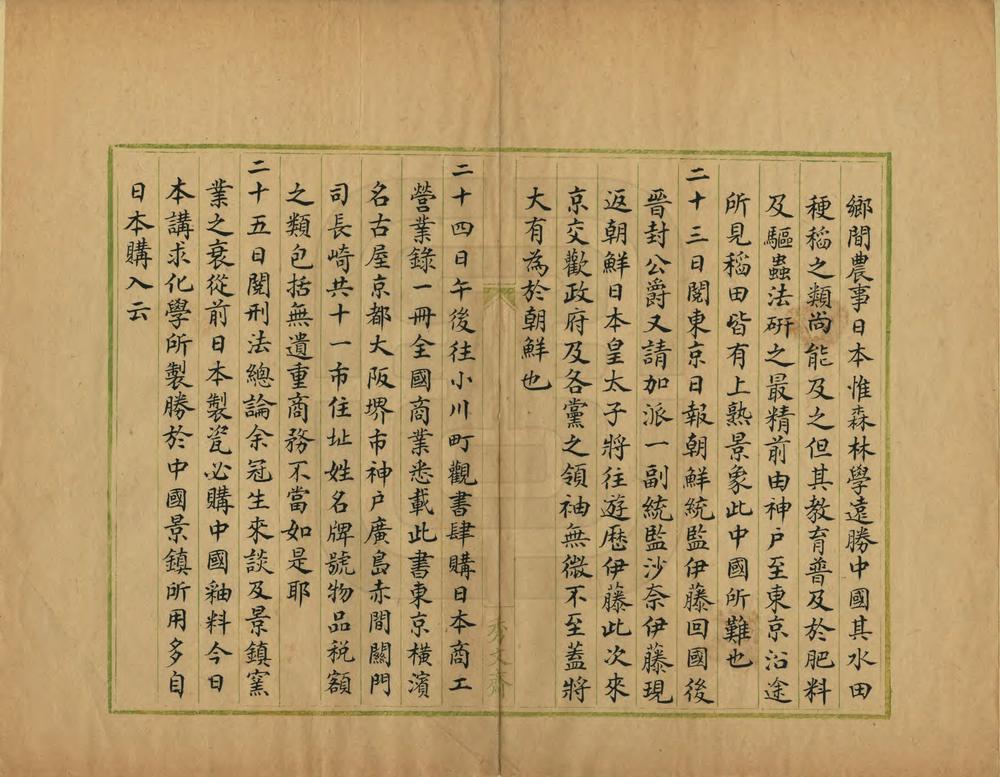 鄉間農事日本惟森林學遠勝中國其水田
稉稻之類尚能及之但其教育普及於肥料
及驅蟲法研之最精前由神户至東京沿途
所見稻田皆有上熟景象此中國所難也
二十三日閱東京日報朝鮮統監伊藤回國後
晉封公爵又請加派一副統監沙奈伊藤現
返朝鮮日本皇太子將往遊歷伊藤此次來
京交歡政府及各黨之領袖無微不至蓋將
大有為於朝鮮也
秀文齋
二十四日午後往小川町觀書肆購日本商工
營業錄一冊全國商業悉載此書東京橫濱
名古屋京都大阪堺市神户廣島赤間關門
司長崎共十一市住址姓名牌號物品稅額
之類包括無遺重商務不當如是耶
二十五日閱刑法總論余冠生來談及景鎮窯
業之衰從前日本製瓷必購中國釉料今日
本講求化學所製勝於中國景鎮所用多自
日本購入云